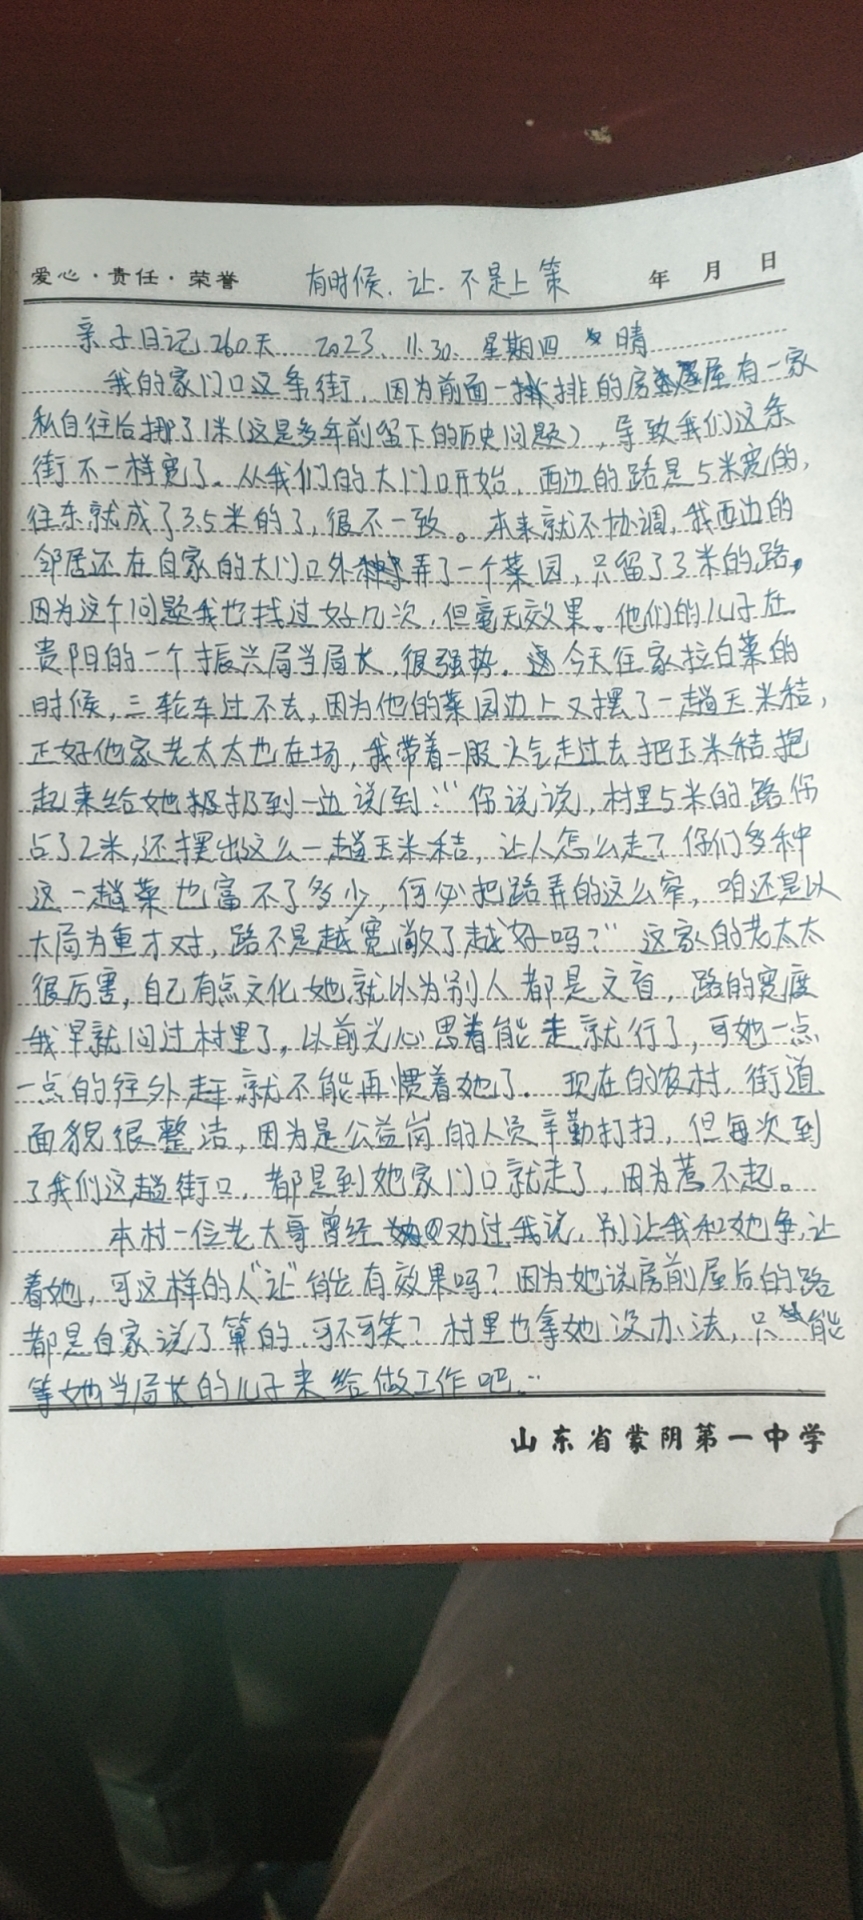 爱心·责任·荣誉 有时候.让.不是上策 年 月 日
亲子日记260天 2023.11.30.星期四 晴
我的家门口这条街,因为前面一排的房屋有一家
私自往后挪了1米(这是多年前留下的历史问题),导致我们这条
街不一样宽了。从我们的大门口开始,西边的路是5米宽的,
往东就成了3.5米的了,很不一致。本来就不协调,我西边的
邻居还在自家的大门口外弄了一个菜园,只留了3米的路,
因为这个问题我也找过好几次,但毫无效果。他们的儿子在
贵阳的一个振兴局当局长,很强势。今天往家拉白菜的
时候,三轮车过不去,因为他的菜园边上又摆了一趟玉米秸,
正好他家老太太也在场,我带着一股火气走过去把玉米秸抱
起来给她扔到一边说到:“你说说,村里5米的路你
占了2米,还摆出这么一趟玉米秸,让人怎么走?你们多种
这一趟菜也富不了多少,何必把路弄的这么窄,咱还是以
大局为重才对,路不是越宽敞了越好吗?”这家的老太太
很厉害,自己有点文化她就以为别人都是文盲,路的宽度
我早就问过村里了,以前光心思着能走就行了,可她一点
一点的往外赶,就不能再惯着她了。现在的农村,街道
面貌很整洁,因为是公益岗的人员辛勤打扫,但每次到
了我们这趟街口,都是到她家门口就走了,因为惹不起。
本村一位老大哥曾经劝过我说,别让我和她争,让
着她,可这样的人“让”能有效果吗?因为她说房前屋后的路
都是自家说了算的,可不可笑?村里也拿她没办法,只能
等她当局长的儿子来给做工作吧…
山东省蒙阴第一中学